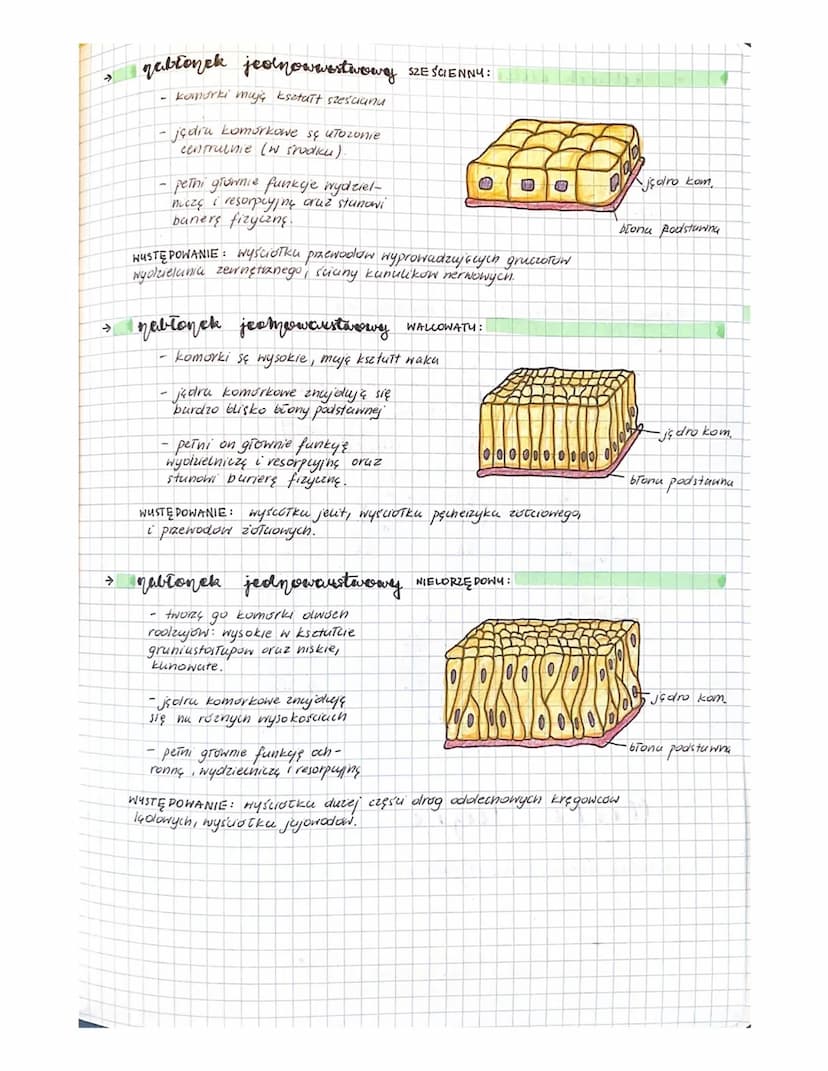 → nabłonek jednowarstwowy SZEŚCIENNY:
- komórki mają kształt sześcianu
- jądra komórkowe są ułożone
centralnie (w środku)
- pełni głównie funkcje wydziel-
niczą i resorpcyjną oraz stanowi
barierę fizyczną.
jądro kom.
błona podstawna
WYSTĘPOWANIE: wyściółka przewodów wyprowadzających gruczołów
wydzielania zewnętrznego, ściany kanalików nerwowych.
→ nabłonek jednowarstwowy WALCOWATY:
- komórki są wysokie, mają kształt walca
- jądra komórkowe znajdują się
bardzo blisko błony podstawnej
- pełni on głównie funkcję
wydzielniczą i resorpcyjną oraz
stanowi barierę fizyczną.
jądro kom.
błona podstawna
WYSTĘPOWANIE: wyściółka jelit, wyściółka pęcherzyka żółciowego,
i przewodów żółciowych.
→ nabłonek jednowarstwowy WIELORZĘDOWY:
- tworzą go komórki dwóch
rodzajów: wysokie w kształcie
graniastosłupów oraz niskie,
klinowate.
- jądra komórkowe znajdują
się na różnych wysokościach
- pełni głównie funkcję och-
ronną, wydzielniczą i resorpcyjną
jądro kom.
błona podstawna
WYSTĘPOWANIE: wyściółka dużej części dróg oddechowych kręgowców
lądowych, wyściółka jajowodów.